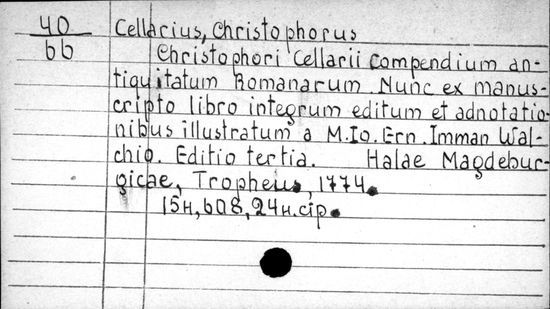 40
66
Cellarius, Christophorus
Christophori Cellarii compendium an-
tiquitatum Romanarum. Nunc ex manus-
cripto libro integrum editum et adnotatio-
nibus illustratum a M.Io. Ern. Imman Wal-
chio. Editio tertia. Halae Magdebur-
gicae, Tropheus, 1774.
15н, 608, 24н. cip.